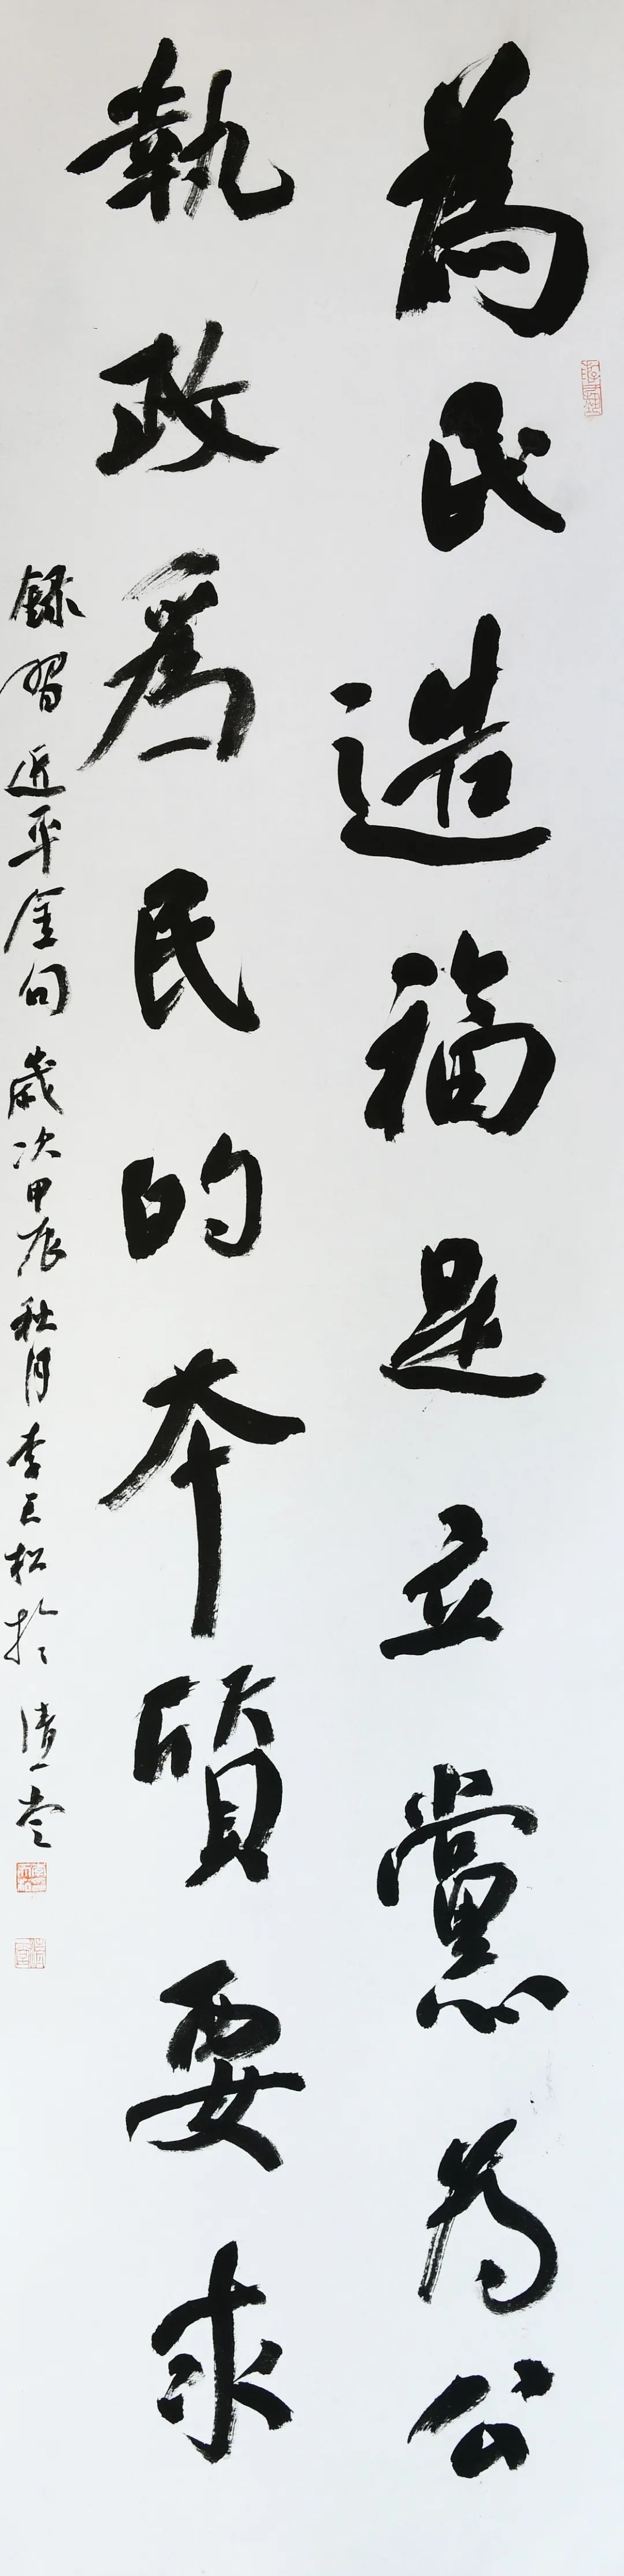 為民造福是立黨為公
執政為民的本質要求
録習近平金句 歲次甲辰秋月李巨松於清一堂